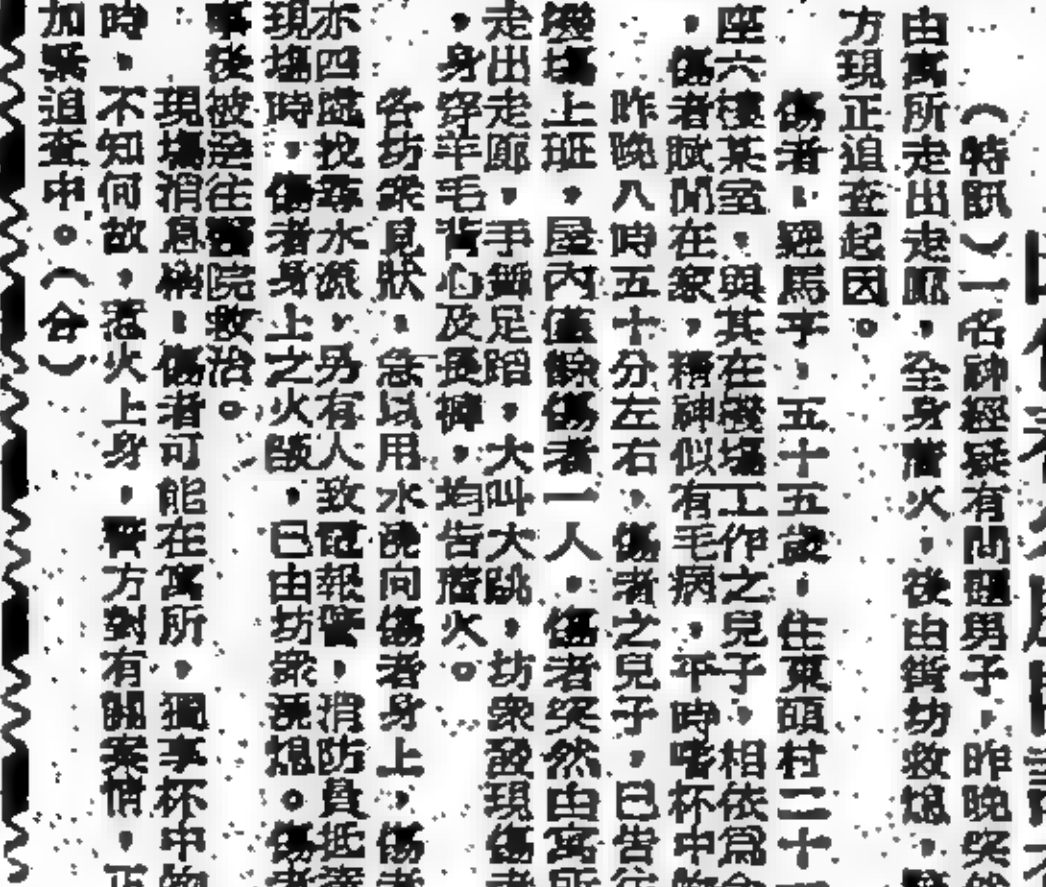 （特訊）一名神經疑有問題男子，昨晚突
由寓所走出走廊，全身着火，後由街坊救熄，
方現正追查起因。
傷者：　馬李，五十五歲，住東頭村二十
座六樓某室，與其在機場工作之兒子，相依爲
，傷者賦閒在家，精神似有毛病，平時嗜杯中
昨晚八時五十分左右，傷者之兒子，已告
機場上班，屋內僅餘傷者一人，傷者突然由寓所
走出走廊，手舞足蹈，大叫大跳，坊衆發現傷者
，身穿羊毛背心及長褲，均告着火。
各坊衆見狀，急以用水澆向傷者身上，傷者
亦四處找尋水源，另有人致電報警，消防員抵達
現場時，傷者身上之火燄，已由坊衆潑熄。傷者
事後被送往醫院救治。
現場消息稱，傷者可能在寓所，獨享杯中物
時，不知何故，惹火上身，警方對有關案情，正
加緊追查中。（合）